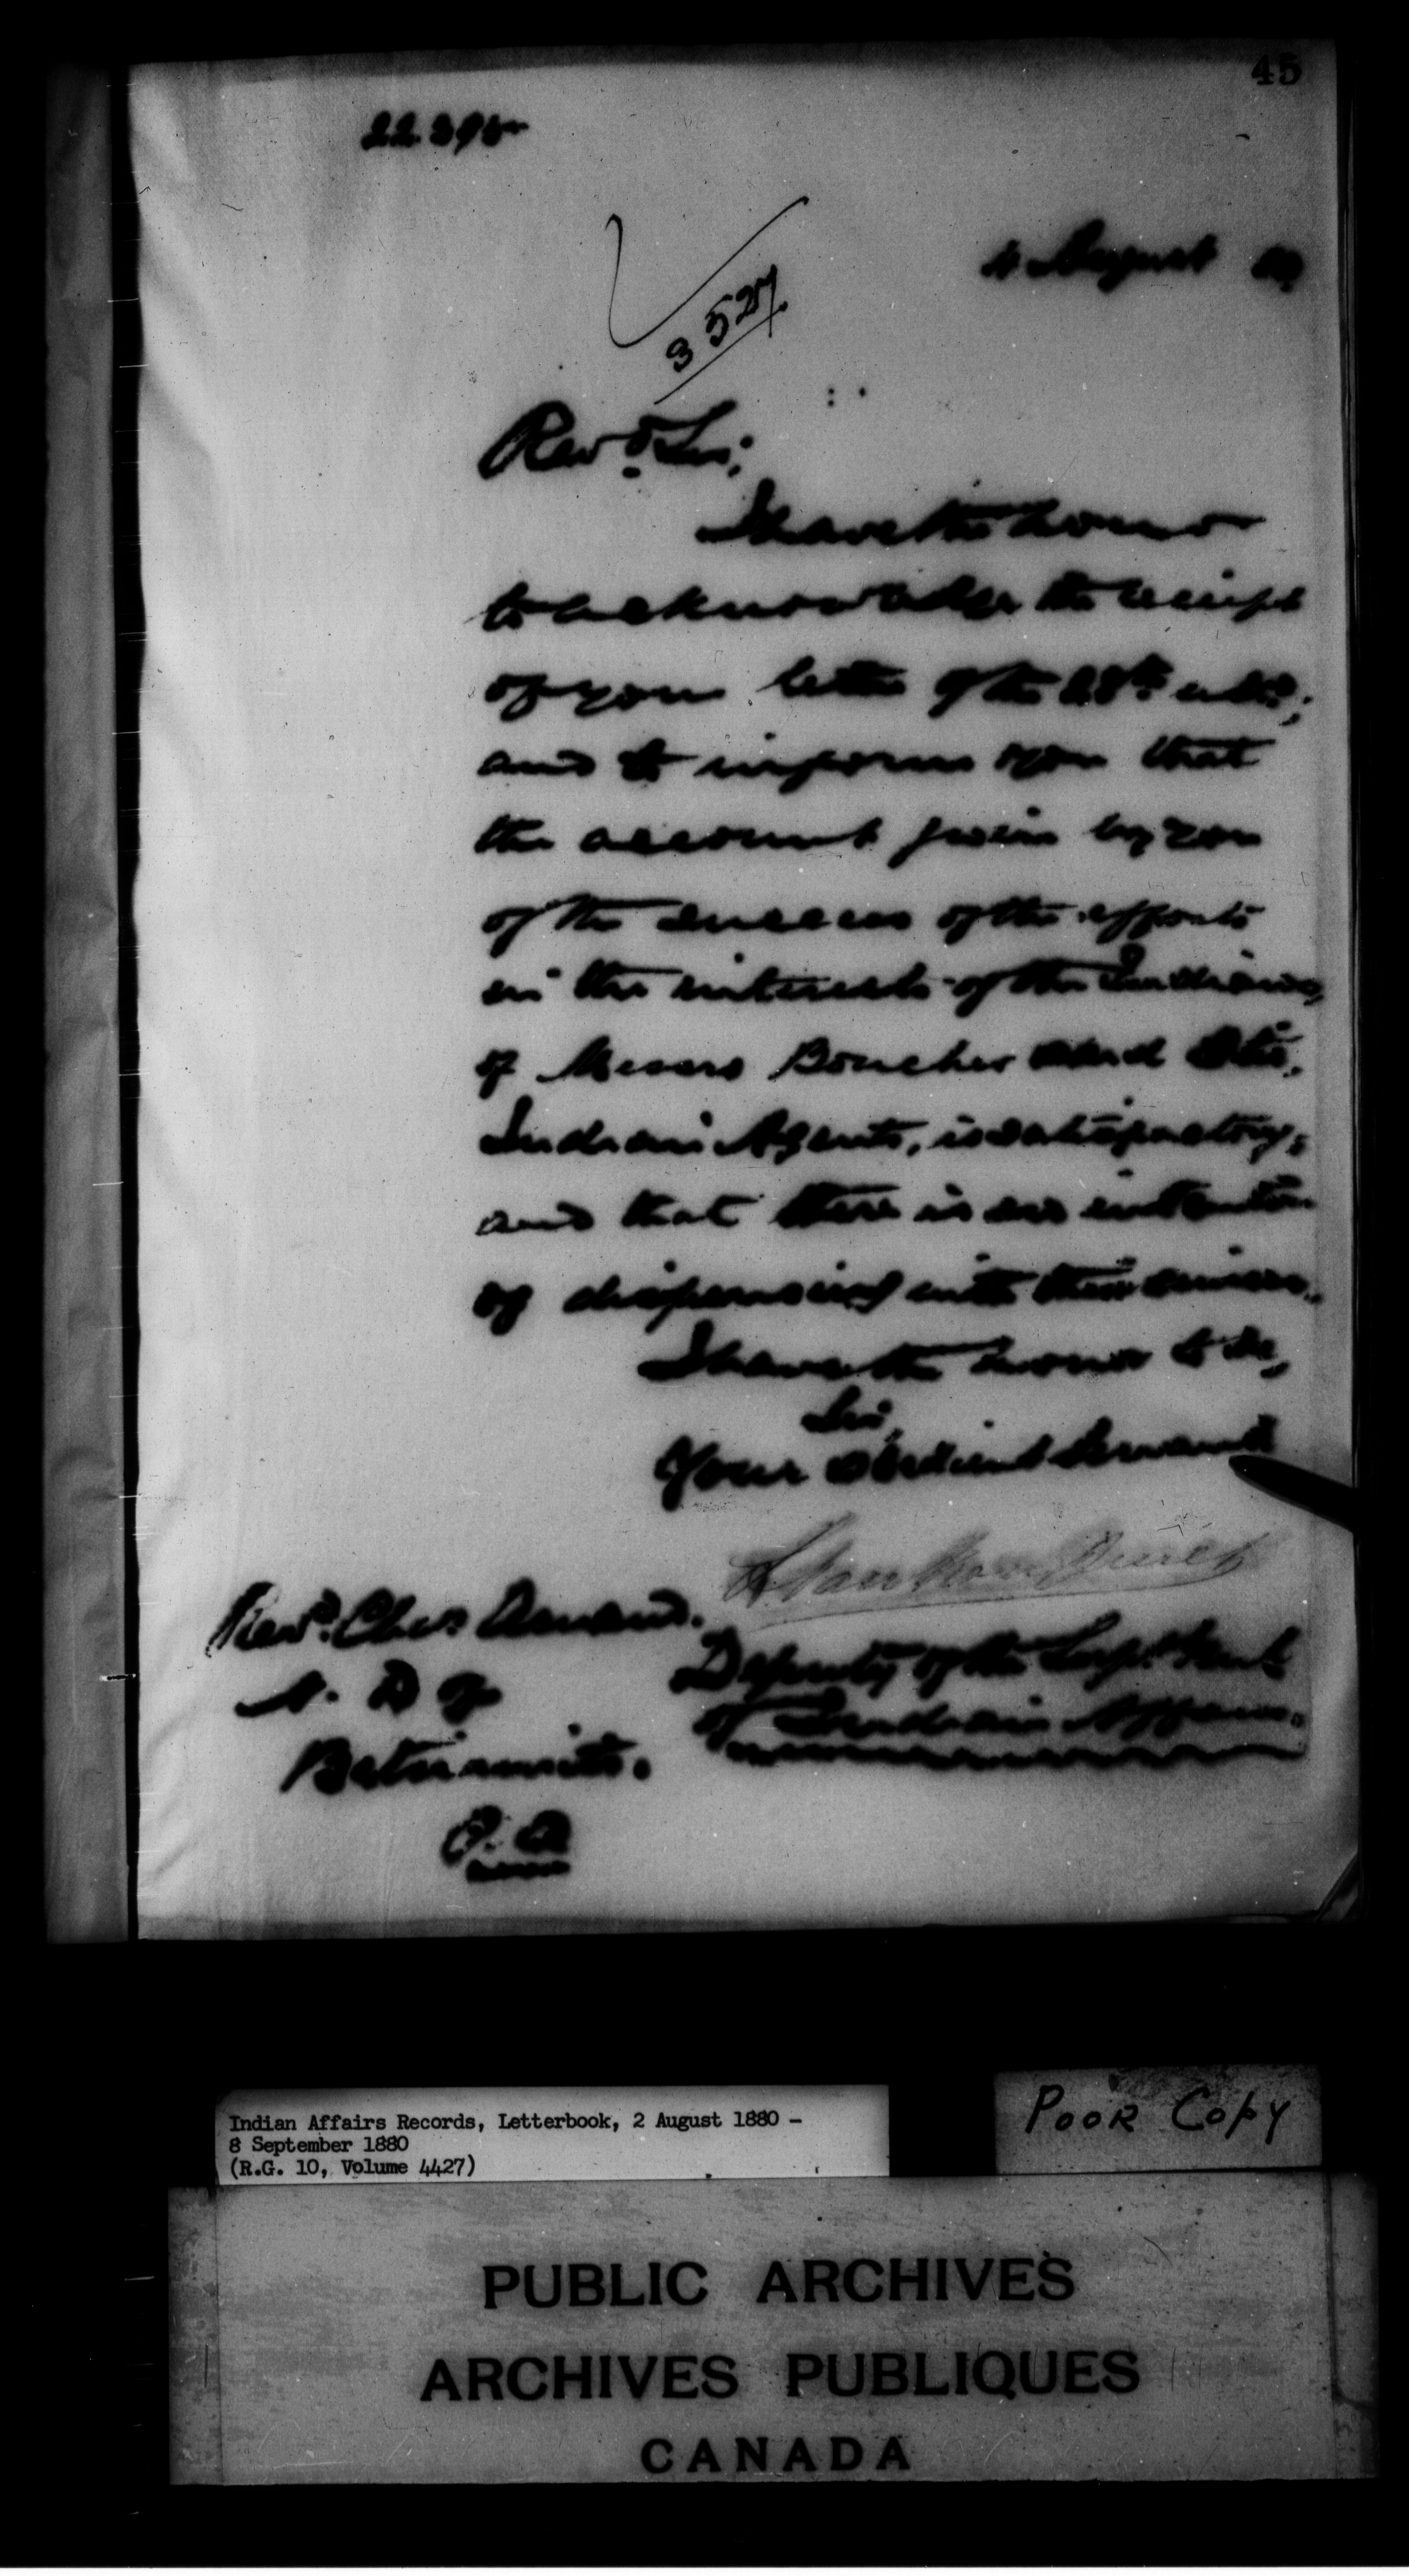 45
22.395
4 August 80
3527
Revd Sir;
I have the honor
to acknowledge the receipt
of your letter of the 28th ulto;
and to inform you that
the account given by you
of the success of the efforts
in the interests of the Indians,
of Messrs Boucher and Otis,
Indian Agents, is satisfactory,
and that there is no intention
of dispensing with their services.
I have the honor to be,
Sir,
Your obedient Servant
L VanKoughnet
Deputy of the Supt. Genl
of Indian Affairs.
Revd. Chas Arnaud.
Betsiamits.
P. Q
Indian Affairs Records, Letterbook, 2 August 1880 -
8 September 1880
(R.G. 10, Volume 4427)
POOR COPY
PUBLIC ARCHIVES
ARCHIVES PUBLIQUES
CANADA